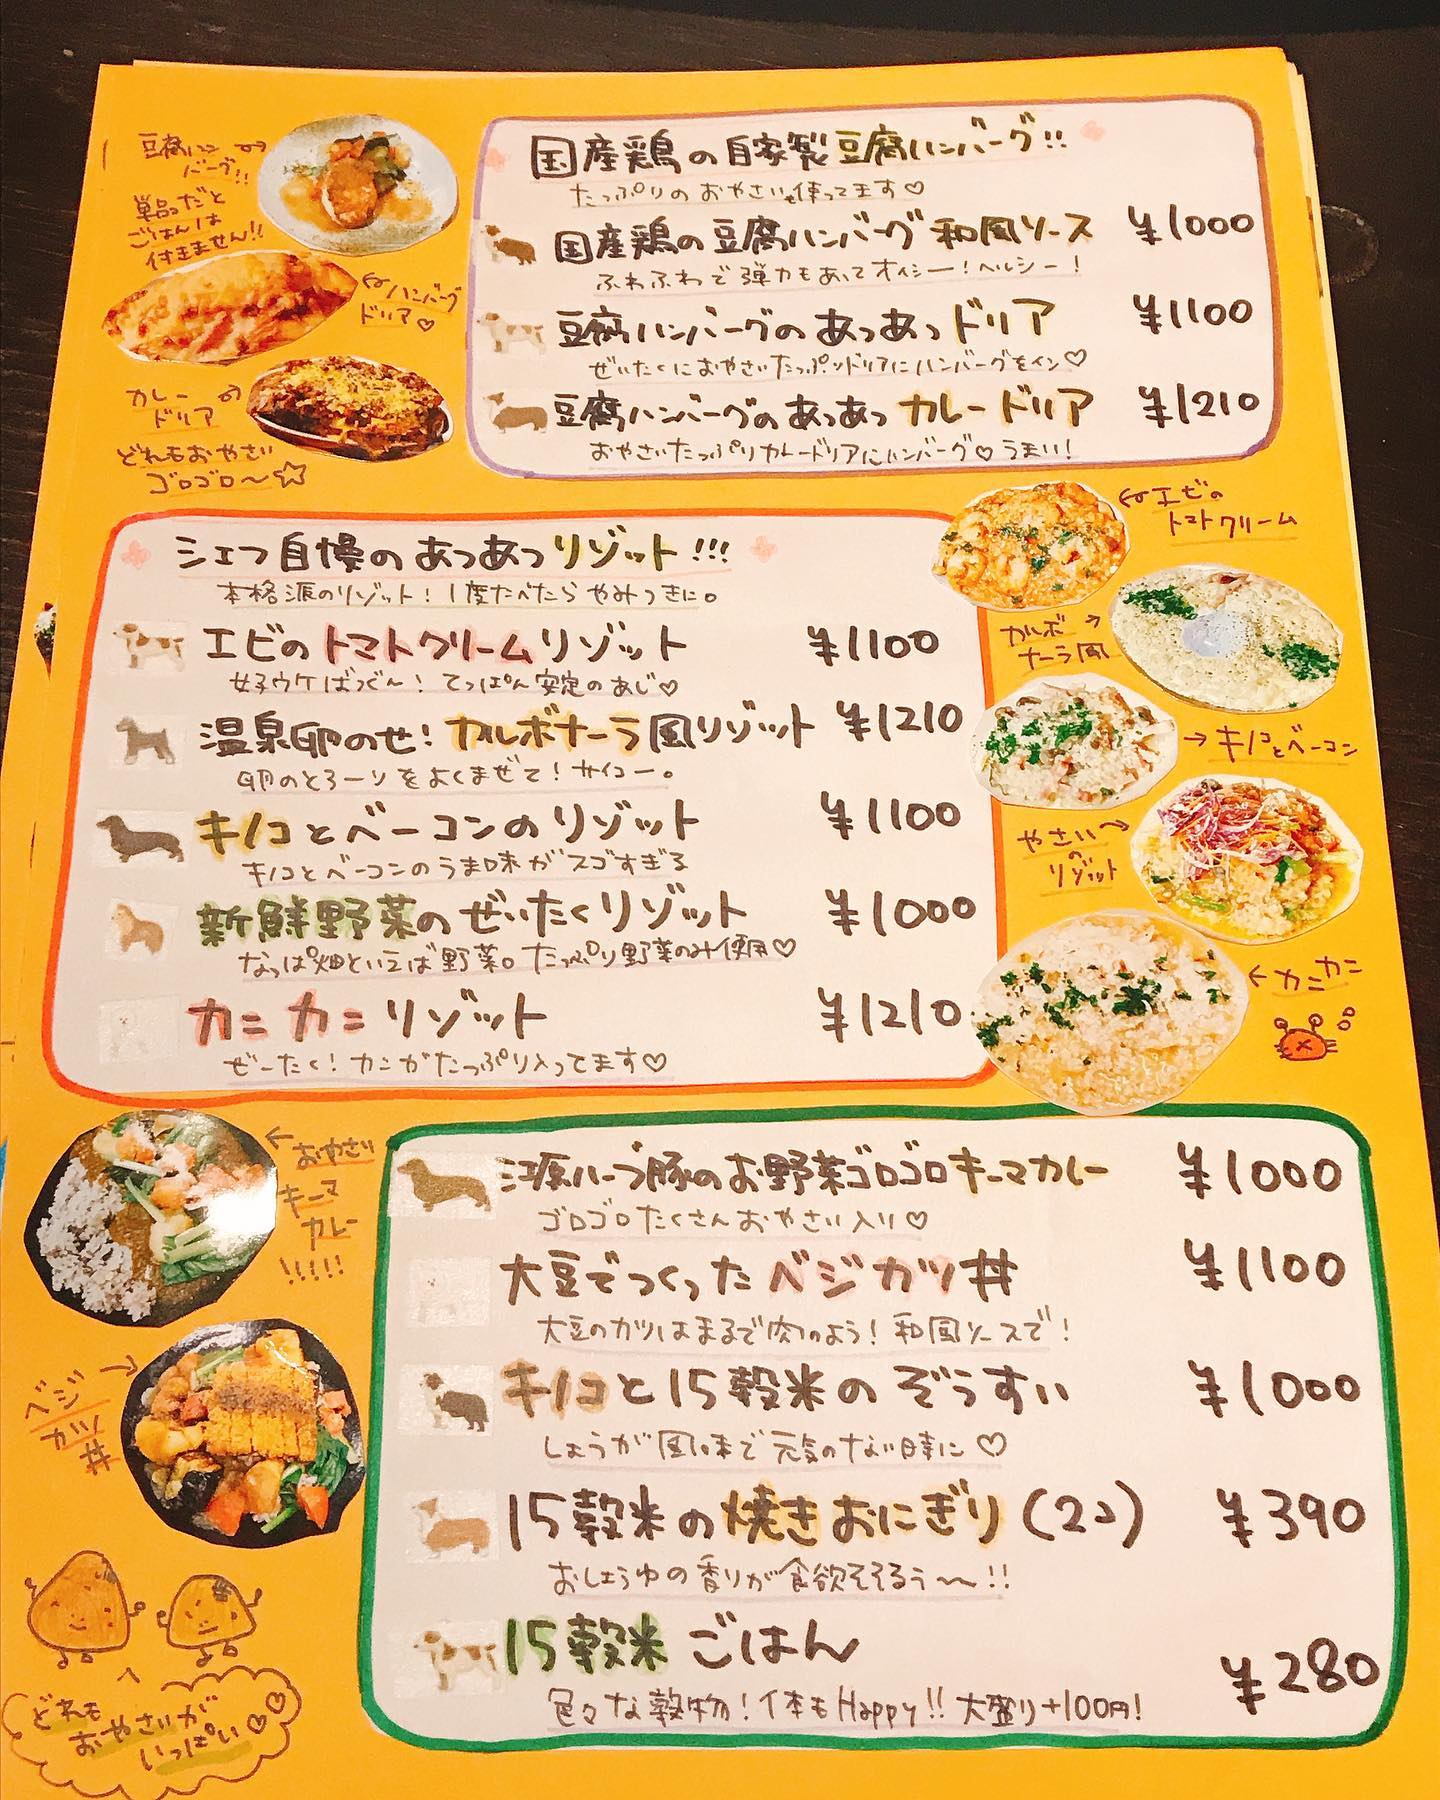 豆腐ハン
バーグ!!
単品だと
ごはんは
付きません!!
ハンバーグ
ドリア♡
カレー
ドリア
どれもおやさい
ゴロゴロ〜☆
国産鶏の自家製豆腐ハンバーグ!!
たっぷりのおやさいも使ってます♡
国産鶏の豆腐ハンバーグ和風ソース ¥1000
ふわふわで弾力もあってオイシー!ヘルシー!
豆腐ハンバーグのあつあつドリア ¥1100
ぜいたくにおやさいたっぷりドリアにハンバーグをイン♡
豆腐ハンバーグのあつあつカレードリア ¥1210
おやさいたっぷりカレードリアにハンバーグ♡うまい!
シェフ自慢のあつあつリゾット!!!
本格派のリゾット!1度たべたらやみつきに。
エビのトマトクリームリゾット ¥1100
女子ウケばつぐん!てっぱん安定のあじ♡
温泉卵のせ!カルボナーラ風リゾット ¥1210
卵のとろーりをよくまぜて!サイコー。
キノコとベーコンのリゾット ¥1100
キノコとベーコンのうま味がスゴすぎる
新鮮野菜のぜいたくリゾット ¥1000
なっぱ畑といえば野菜。たっぷり野菜のみ使用♡
カニカニリゾット ¥1210
ぜーたく!カニがたっぷり入ってます♡
エビの
トマトクリーム
カルボ
ナーラ風
キノコとベーコン
やさい
の
リゾット
カニカニ
おやさい
キーマ
カレー
!!!!!
ベジ
カツ
丼
江源ハーブ豚のお野菜ゴロゴロキーマカレー ¥1000
ゴロゴロたくさんおやさい入り♡
大豆でつくったベジカツ丼 ¥1100
大豆のカツはまるで肉のよう!和風ソースで!
キノコと15穀米のぞうすい ¥1000
しょうが風味で元気のない時に♡
15穀米の焼きおにぎり(2コ) ¥390
おしょうゆの香りが食欲そそるぅ〜!!
15穀米ごはん ¥280
色々な穀物!体もHappy!!大盛り+100円!
どれも
おやさいが
いっぱい♡♡